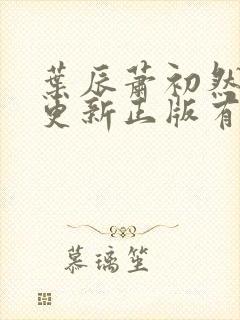 葉辰蕭初然
更新正版有
慕璃笙